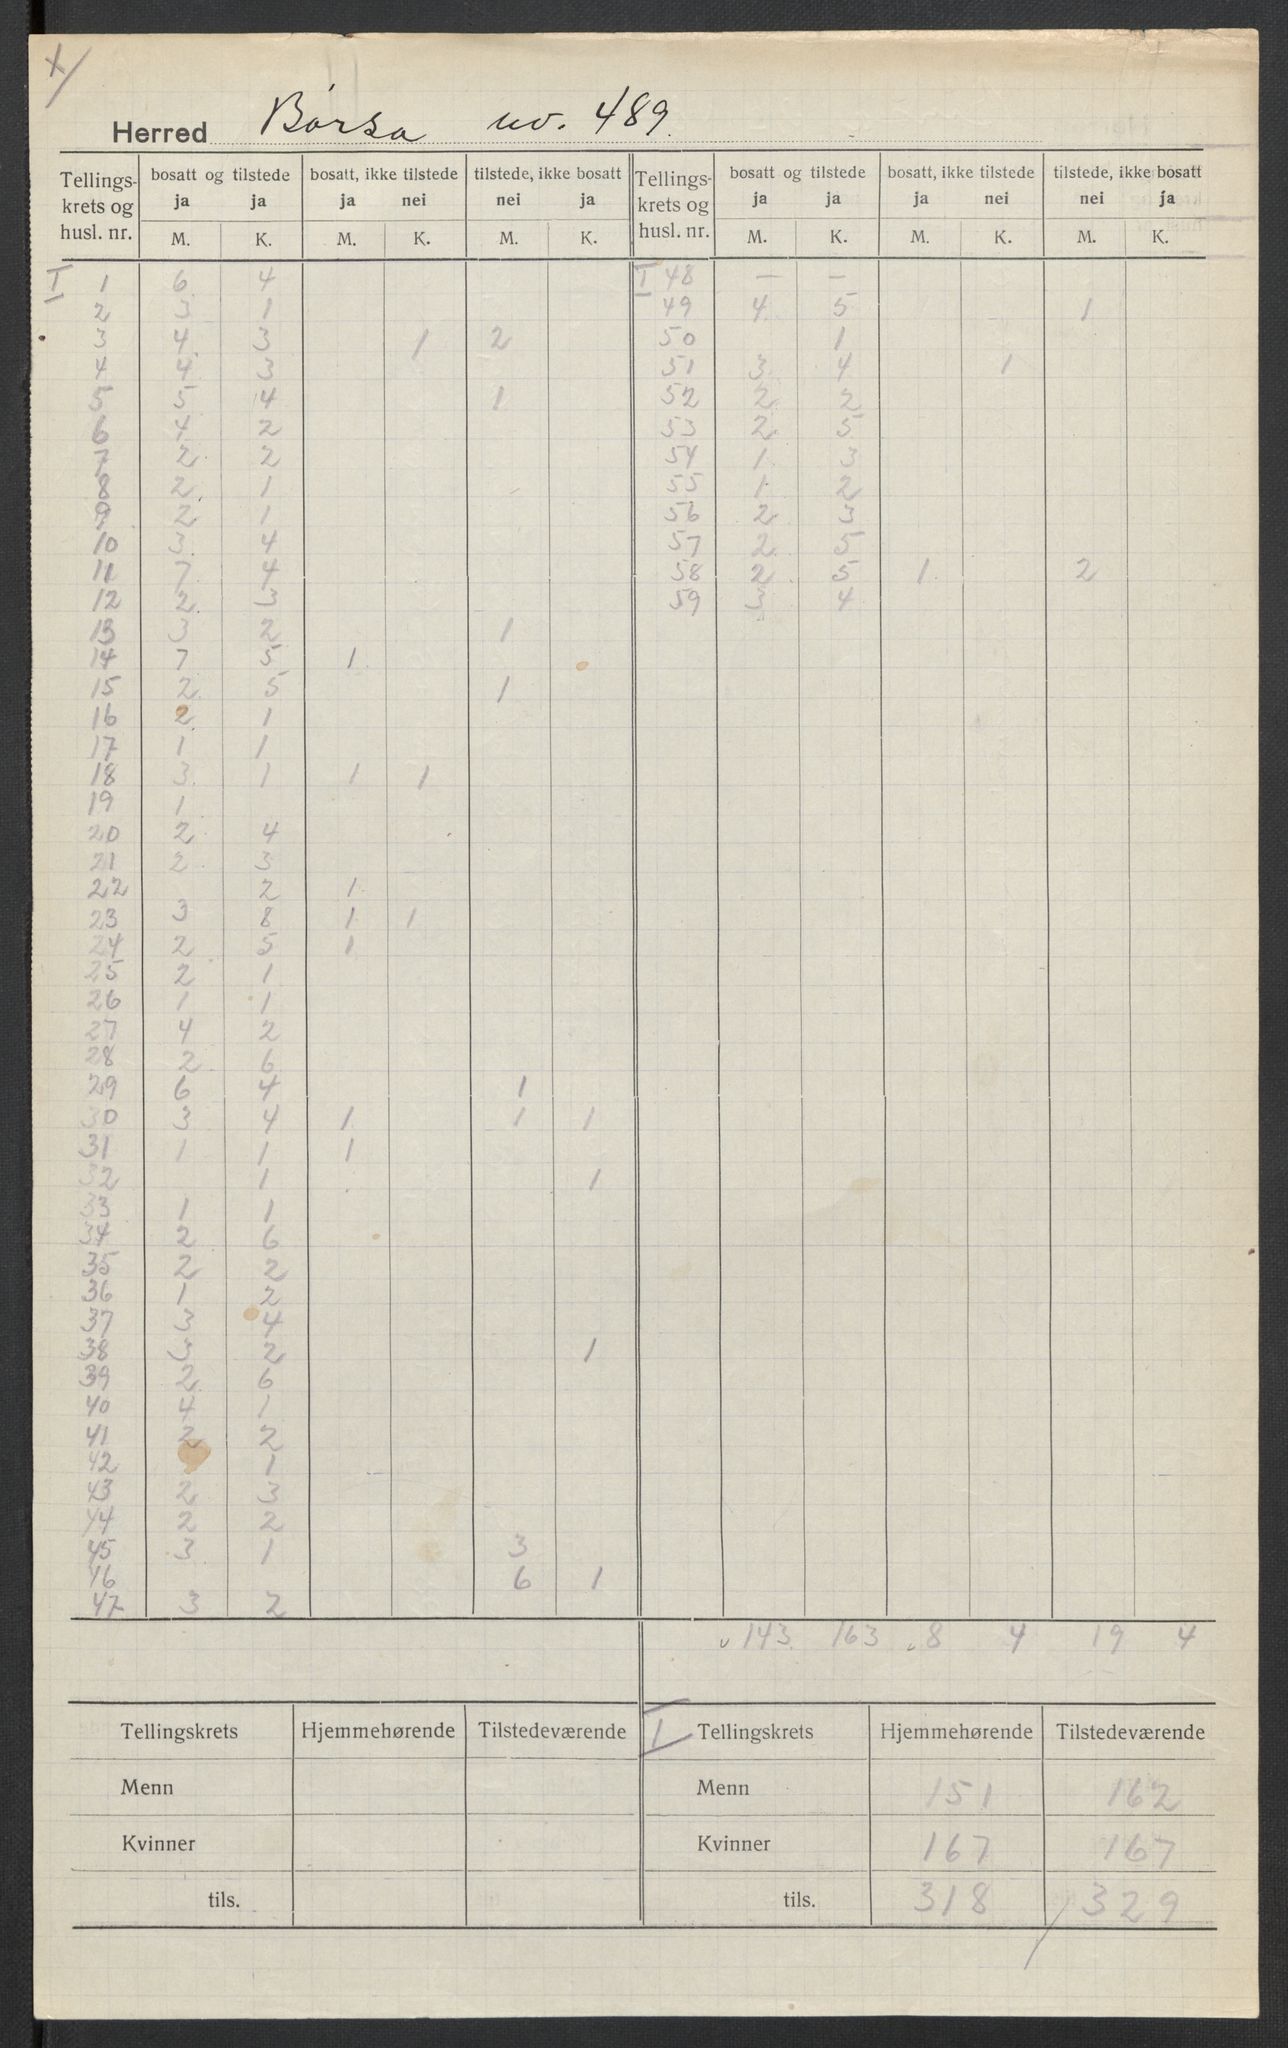 X/
Herred Börsa nv. 489.
Tellingskrets og husl. nr. | bosatt og tilstede ja M. | ja K. | bosatt, ikke tilstede ja M. | nei K. | tilstede, ikke bosatt nei M. | ja K. | Tellingskrets og husl. nr. | bosatt og tilstede ja M. | ja K. | bosatt, ikke tilstede ja M. | nei K. | tilstede, ikke bosatt nei M. | ja K.
I 1 | 6 | 4 | | | | | I 48 | — | — | | | |
2 | 3 | 1 | | | | | 49 | 4 | 5 | | | 1 |
3 | 4 | 3 | | 1 | 2 | | 50 | | 1 | | | |
4 | 4 | 3 | | | | | 51 | 3 | 4 | | 1 | |
5 | 5 | 4 | | | 1 | | 52 | 2 | 2 | | | |
6 | 4 | 2 | | | | | 53 | 2 | 5 | | | |
7 | 2 | 2 | | | | | 54 | 1 | 3 | | | |
8 | 2 | 1 | | | | | 55 | 1 | 2 | | | |
9 | 2 | 1 | | | | | 56 | 2 | 3 | | | |
10 | 3 | 4 | | | | | 57 | 2 | 5 | | | |
11 | 7 | 4 | | | | | 58 | 2 | 5 | 1 | | 2 |
12 | 2 | 3 | | | | | 59 | 3 | 4 | | | |
13 | 3 | 2 | | | 1 |
14 | 7 | 5 | 1 | | |
15 | 2 | 5 | | | 1 |
16 | 2 | 1 | | | |
17 | 1 | 1 | | | |
18 | 3 | 1 | 1 | 1 | |
19 | 1 | | | | |
20 | 2 | 4 | | | |
21 | 2 | 3 | | | |
22 | | 2 | 1 | | |
23 | 3 | 8 | 1 | 1 | |
24 | 2 | 5 | 1 | | |
25 | 2 | 1 | | | |
26 | 1 | 1 | | | |
27 | 4 | 2 | | | |
28 | 2 | 6 | | | |
29 | 6 | 4 | | | 1 |
30 | 3 | 4 | 1 | | 1 | 1
31 | 1 | 1 | 1 | | |
32 | | 1 | | | | 1
33 | 1 | 1 | | | |
34 | 2 | 6 | | | |
35 | 2 | 2 | | | |
36 | 1 | 2 | | | |
37 | 3 | 4 | | | |
38 | 3 | 2 | | | | 1
39 | 2 | 6 | | | |
40 | 4 | 1 | | | |
41 | 2 | 2 | | | |
42 | | 1 | | | |
43 | 2 | 3 | | | |
44 | 2 | 2 | | | |
45 | 3 | 1 | | | 3 |
46 | | | | | 6 | 1
47 | 3 | 2 | | | |
143 | 163 | 8 | 4 | 19 | 4
Tellingskrets | Hjemmehørende | Tilstedeværende | I Tellingskrets | Hjemmehørende | Tilstedeværende
Menn | | | Menn | 151 | 162
Kvinner | | | Kvinner | 167 | 167
tils. | | | tils. | 318 | 329